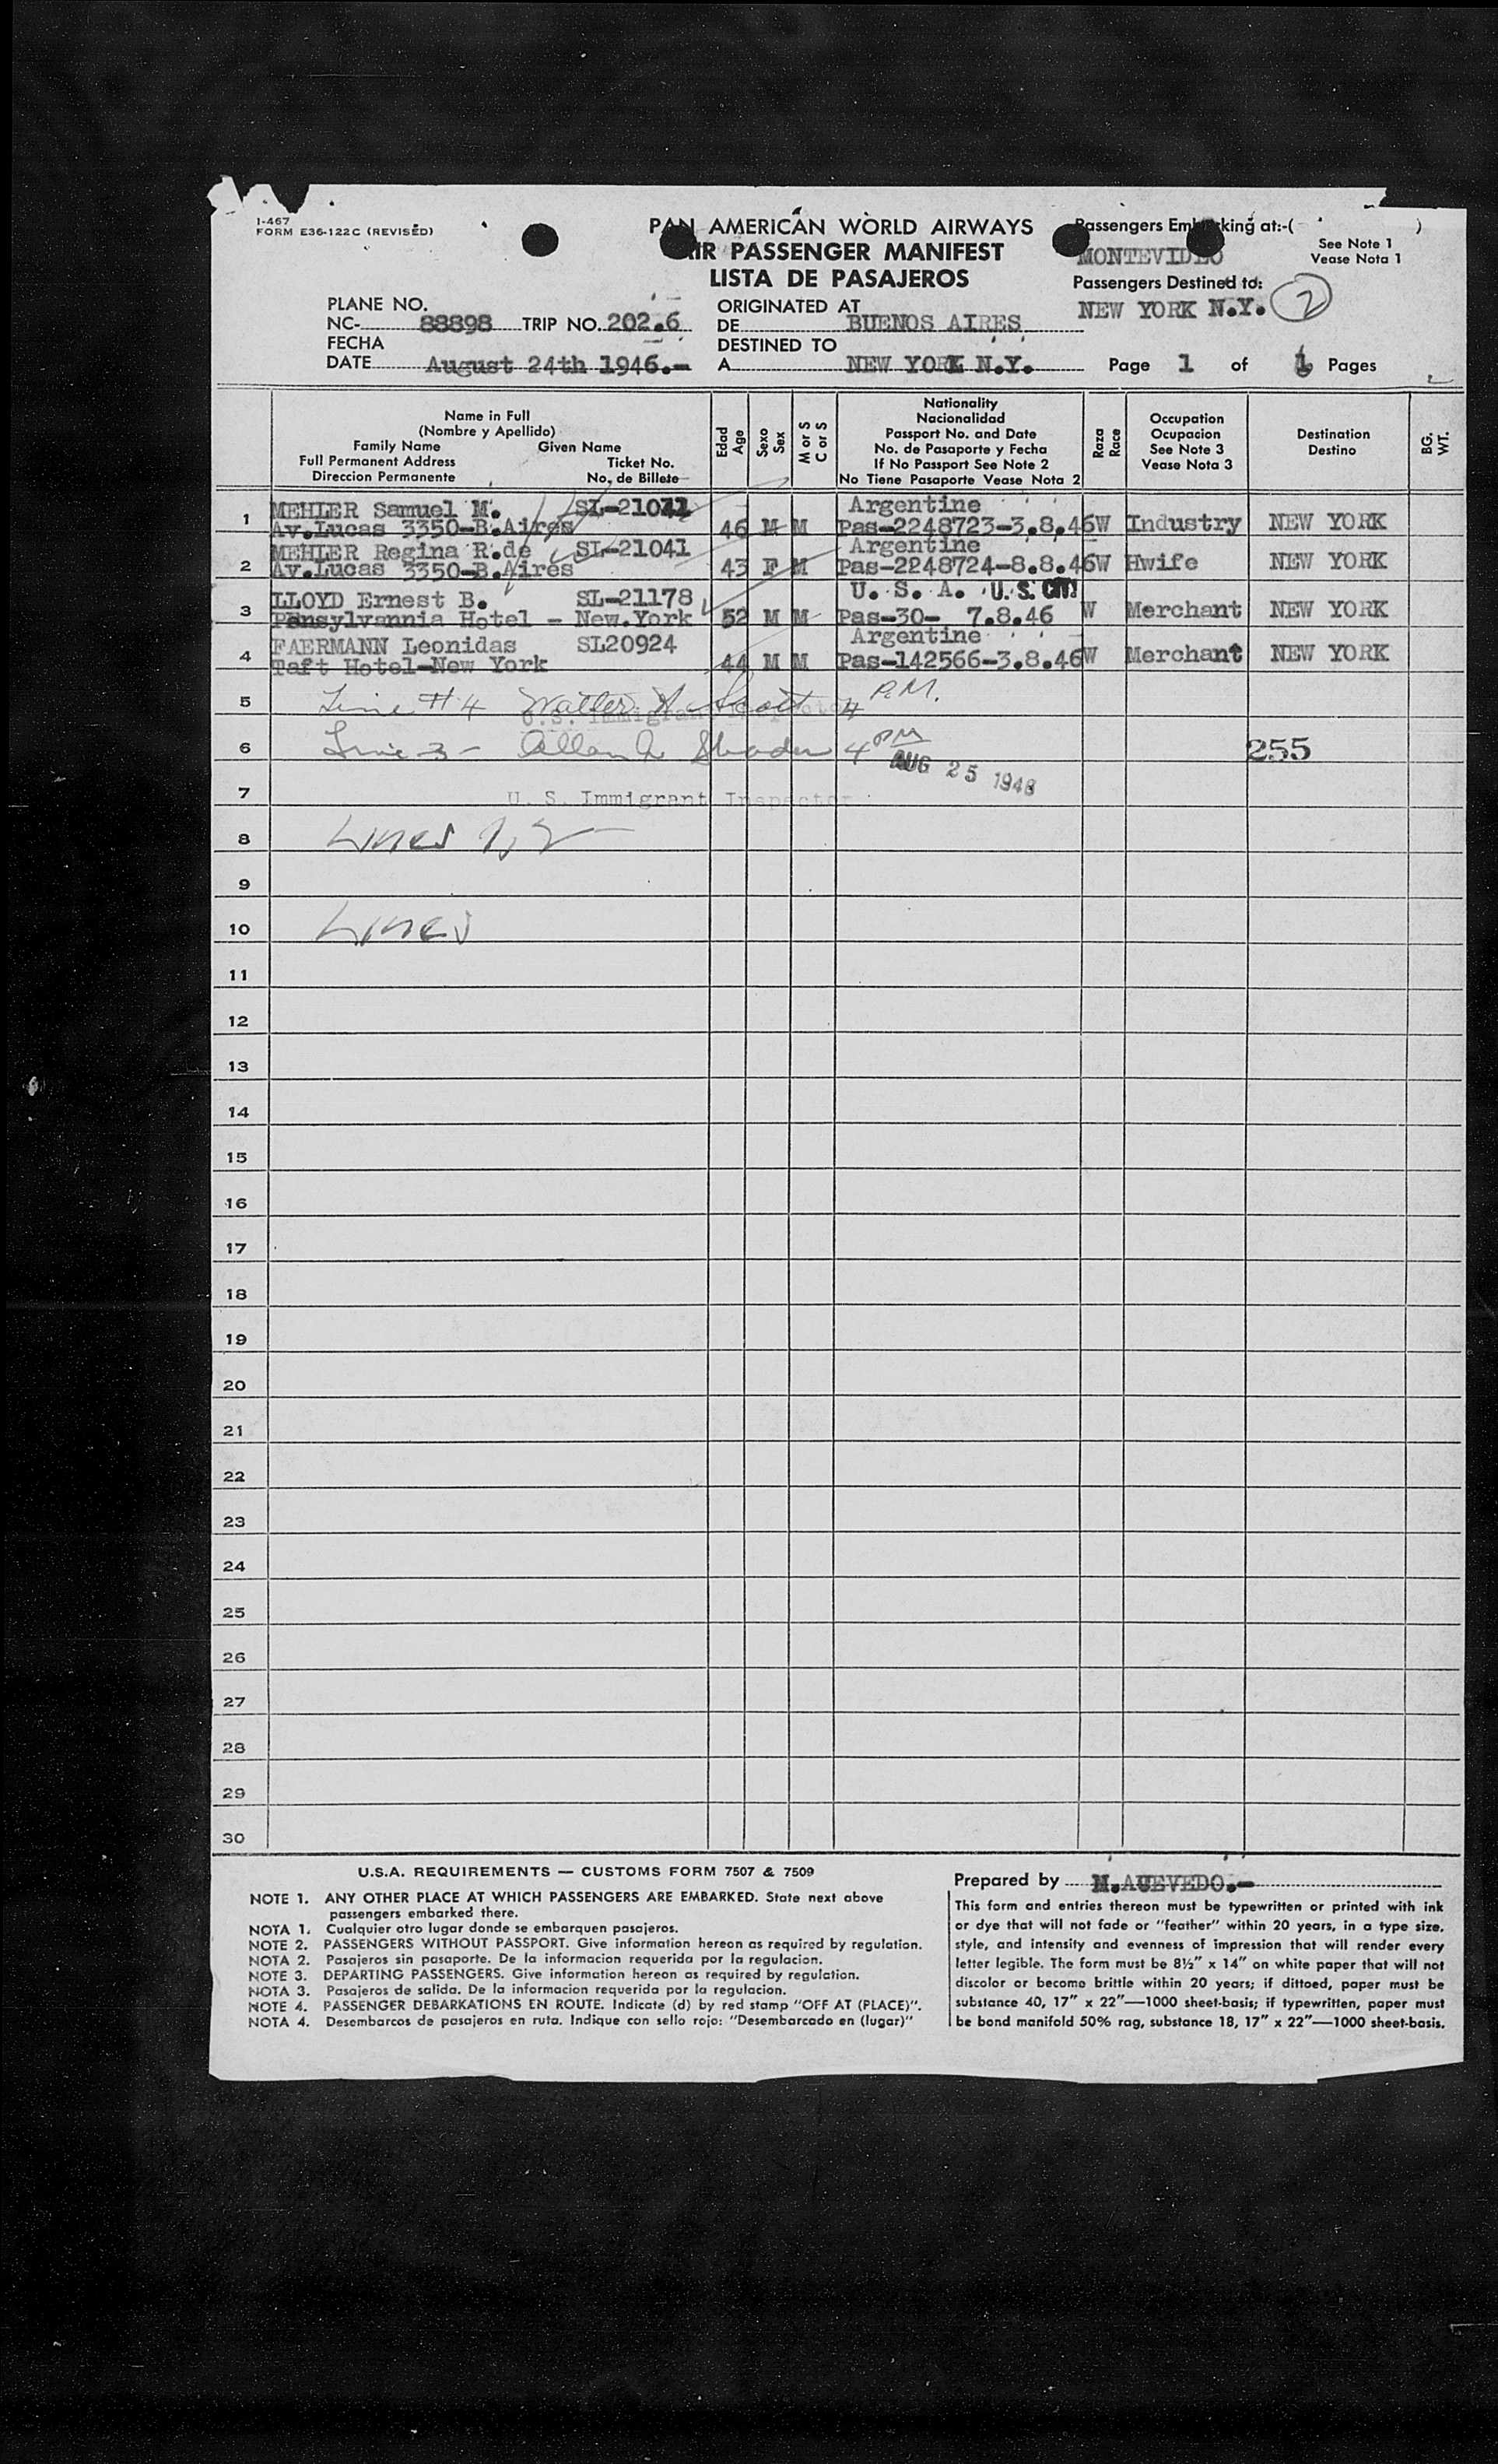 I-467
FORM E36-122C (REVISED)
PAN AMERICAN WORLD AIRWAYS
AIR PASSENGER MANIFEST
LISTA DE PASAJEROS
Passengers Embarking at:-( )
See Note 1
Vease Nota 1
MONTEVIDEO
Passengers Destined to:
NEW YORK N.Y. 2
PLANE NO.
NC- 88898 TRIP NO. 202.6
FECHA
DATE August 24th 1946.-
ORIGINATED AT
DE BUENOS AIRES
DESTINED TO
A NEW YORK N.Y.
Page 1 of Pages
Name in Full
(Nombre y Apellido)
Family Name Given Name
Full Permanent Address Ticket No.
Direccion Permanente No. de Billete
Edad
Age
Sexo
Sex
M or S
C or S
Nationality
Nacionalidad
Passport No. and Date
No. de Pasaporte y Fecha
If No Passport See Note 2
No Tiene Pasaporte Vease Nota 2
Raza
Race
Occupation
Ocupacion
See Note 3
Vease Nota 3
Destination
Destino
BG.
WT.
MEHLER Samuel M. Argentine
1 Av.Lucas 3350-B.Aires 46 M M Pas-2248723-3.8.46 W Industry NEW YORK
MEHLER Regina R.de SL-21041 Argentine
2 Av.Lucas 3350-B.Aires 43 F M Pas-2248724-8.8.46 W Hwife NEW YORK
LLOYD Ernest B. SL-21178 U. S. A. U.S. CIT
3 Pensylvannia Hotel - New.York 52 M M Pas-30- 7.8.46 W Merchant NEW YORK
FAERMANN Leonidas SL20924 Argentine
4 Taft Hotel-New York 44 M M Pas-142566-3.8.46 W Merchant NEW YORK
5 Line #4 Walter Scott 4 P.M.
U.S. Immigrant Inspector
6 Line 3 - Allan 4 PM 255
AUG 25 1946
7 U. S. Immigrant Inspector
8 Lines 1, 2
9
10 Lines
11
12
13
14
15
16
17
18
19
20
21
22
23
24
25
26
27
28
29
30
U.S.A. REQUIREMENTS — CUSTOMS FORM 7507 & 7509
NOTE 1. ANY OTHER PLACE AT WHICH PASSENGERS ARE EMBARKED. State next above
passengers embarked there.
NOTA 1. Cualquier otro lugar donde se embarquen pasajeros.
NOTE 2. PASSENGERS WITHOUT PASSPORT. Give information hereon as required by regulation.
NOTA 2. Pasajeros sin pasaporte. De la informacion requerida por la regulacion.
NOTE 3. DEPARTING PASSENGERS. Give information hereon as required by regulation.
NOTA 3. Pasajeros de salida. De la informacion requerida por la regulacion.
NOTE 4. PASSENGER DEBARKATIONS EN ROUTE. Indicate (d) by red stamp "OFF AT (PLACE)".
NOTA 4. Desembarcos de pasajeros en ruta. Indique con sello rojo: "Desembarcado en (lugar)"
Prepared by M.
This form and entries thereon must be typewritten or printed with ink
or dye that will not fade or "feather" within 20 years, in a type size,
style, and intensity and evenness of impression that will render every
letter legible. The form must be 8½" x 14" on white paper that will not
discolor or become brittle within 20 years; if dittoed, paper must be
substance 40, 17" x 22"—1000 sheet-basis; if typewritten, paper must
be bond manifold 50% rag, substance 18, 17" x 22"—1000 sheet-basis.